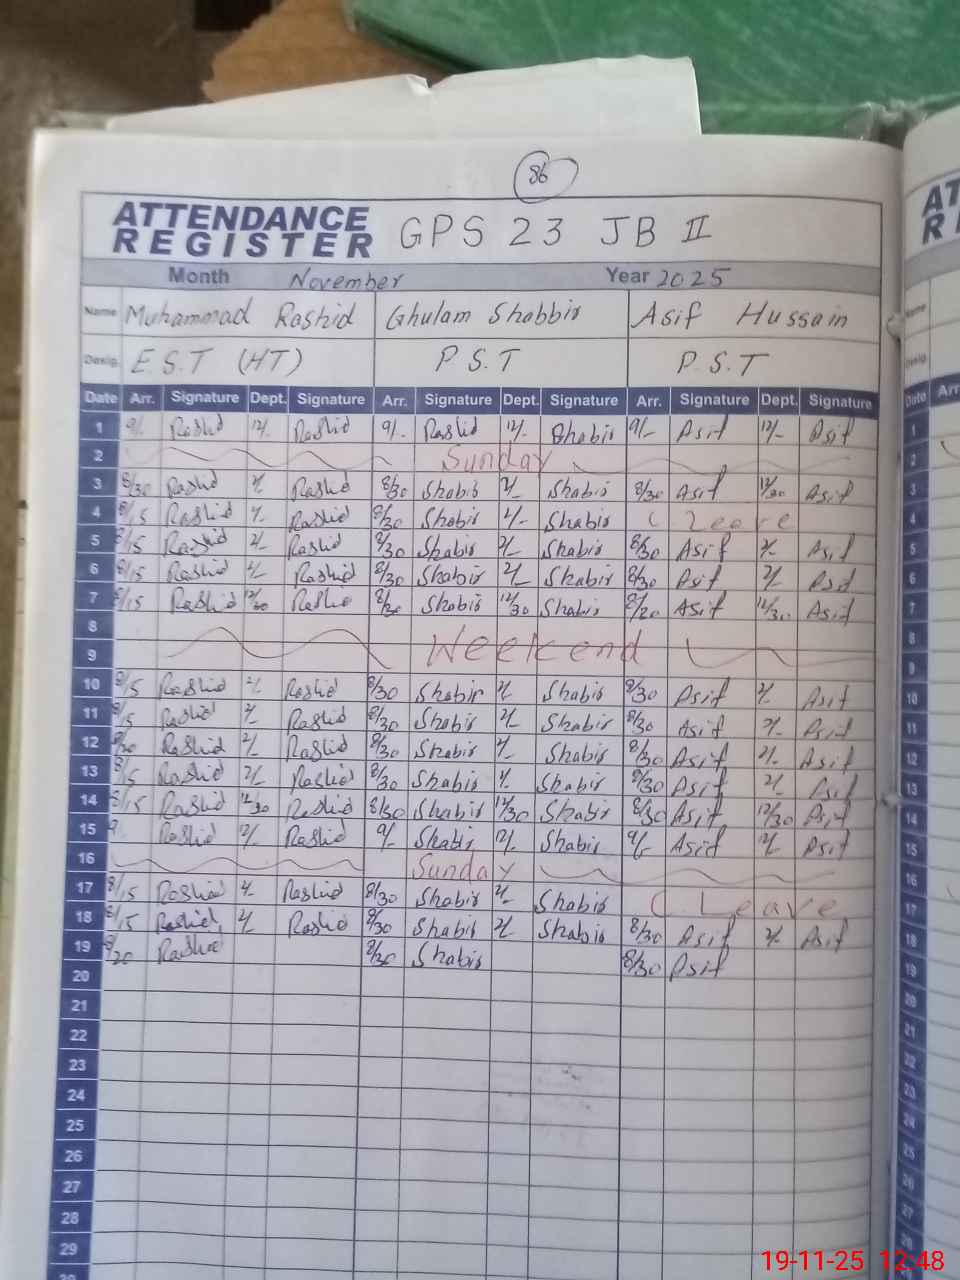 86
ATTENDANCE REGISTER GPS 23 JB II
Month November Year 2025
Name Muhammad Rashid Ghulam Shabbir Asif Hussain
Desig. E.S.T (HT) P.S.T P.S.T
Date Arr. Signature Dept. Signature Arr. Signature Dept. Signature Arr. Signature Dept. Signature
1 9/- Rashid 12/- Rashid 9/- Rashid 12/- Shabir 9/- Asif 12/- Asif
2 Sunday
3 8/30 Rashid 2/- Rashid 8/30 Shabir 2/- Shabir 8/30 Asif 12/30 Asif
4 8/15 Rashid 2/- Rashid 8/30 Shabir 2/- Shabir C Leave
5 8/15 Rashid 2/- Rashid 8/30 Shabir 2/- Shabir 8/30 Asif 2/- Asif
6 8/15 Rashid 2/- Rashid 8/30 Shabir 2/- Shabir 8/30 Asif 2/- Asif
7 8/15 Rashid 12/30 Rashid Shabir 12/30 Shabir Asif 12/30 Asif
8
9 Weekend
10 8/15 Rashid 2/- Rashid 8/30 Shabir 2/- Shabir 8/30 Asif 2/- Asif
11 8/15 Rashid 2/- Rashid 8/30 Shabir 2/- Shabir 8/30 Asif 2/- Asif
12 Rashid 2/- Rashid 8/30 Shabir 2/- Shabir 8/30 Asif 2/- Asif
13 8/15 Rashid 2/- Rashid 8/30 Shabir 2/- Shabir 8/30 Asif 2/- Asif
14 8/15 Rashid 12/30 Rashid 8/30 Shabir 12/30 Shabir 8/30 Asif 12/30 Asif
15 9 Rashid 12/- Rashid 9/- Shabir 12/- Shabir 9/- Asif 12/- Asif
16 Sunday
17 8/15 Rashid 2/- Rashid 8/30 Shabir 2/- Shabir C. Leave
18 8/15 Rashid 2/- Rashid 8/30 Shabir 2/- Shabir 8/30 Asif 2/- Asif
19 8/20 Rashid 8/30 Shabir 8/30 Asif
20
21
22
23
24
25
26
27
28
29
19-11-25 12:48